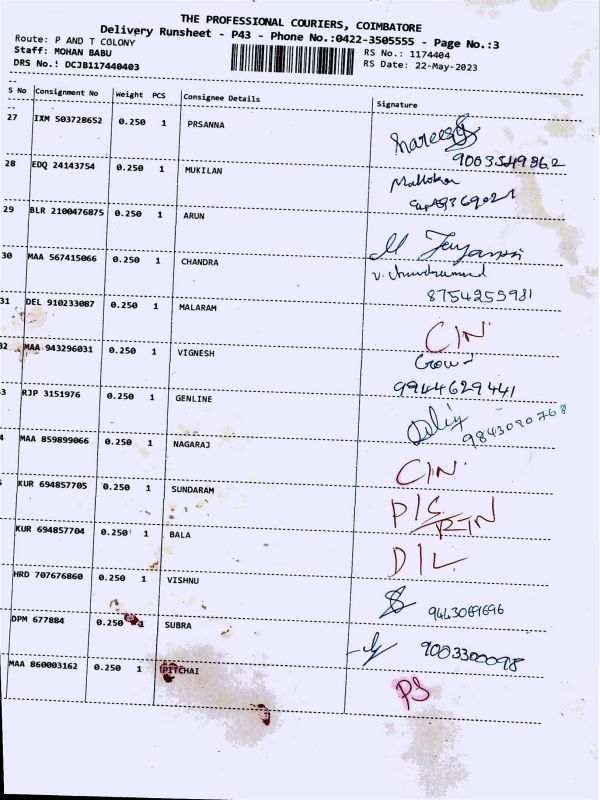 THE PROFESSIONAL COURIERS, COIMBATORE
Delivery Runsheet - P43 - Phone No.:0422-3505555 - Page No.:3
Route: P AND T COLONY
RS No.: 1174404
Staff: MOHAN BABU
RS Date: 22-May-2023
DRS No.: DCJB117440403
S No Consignment No Weight PCS Consignee Details Signature
27 IXM 503728652 0.250 1 PRSANNA
9003549862
28 EDQ 24143754 0.250 1 MUKILAN
29 BLR 2100476875 0.250 1 ARUN
30 MAA 567415066 0.250 1 CHANDRA
8754255981
31 DEL 910233087 0.250 1 MALARAM C/N
32 MAA 943296031 0.250 1 VIGNESH
9944629441
3 RJP 3151976 0.250 1 GENLINE
9843080768
4 MAA 859899066 0.250 1 NAGARAJ C/N
KUR 694857705 0.250 1 SUNDARAM P/S RTN
KUR 694857704 0.250 1 BALA D/L
HRD 707676860 0.250 1 VISHNU 9443069696
DPM 677884 0.250 1 SUBRA 9003300098
MAA 860003162 0.250 1 PITCHAI PS